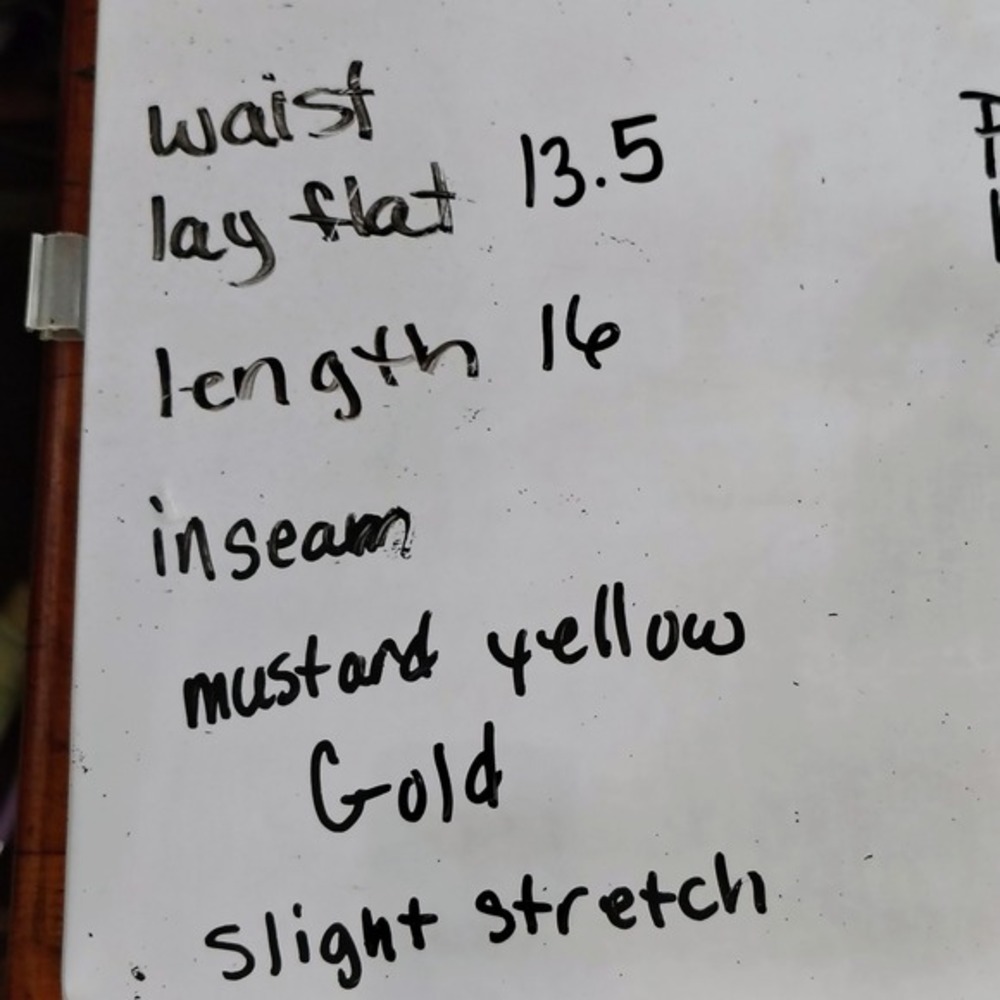 waist
lay flat 13.5
length 16
inseam
mustard yellow
Gold
slight stretch